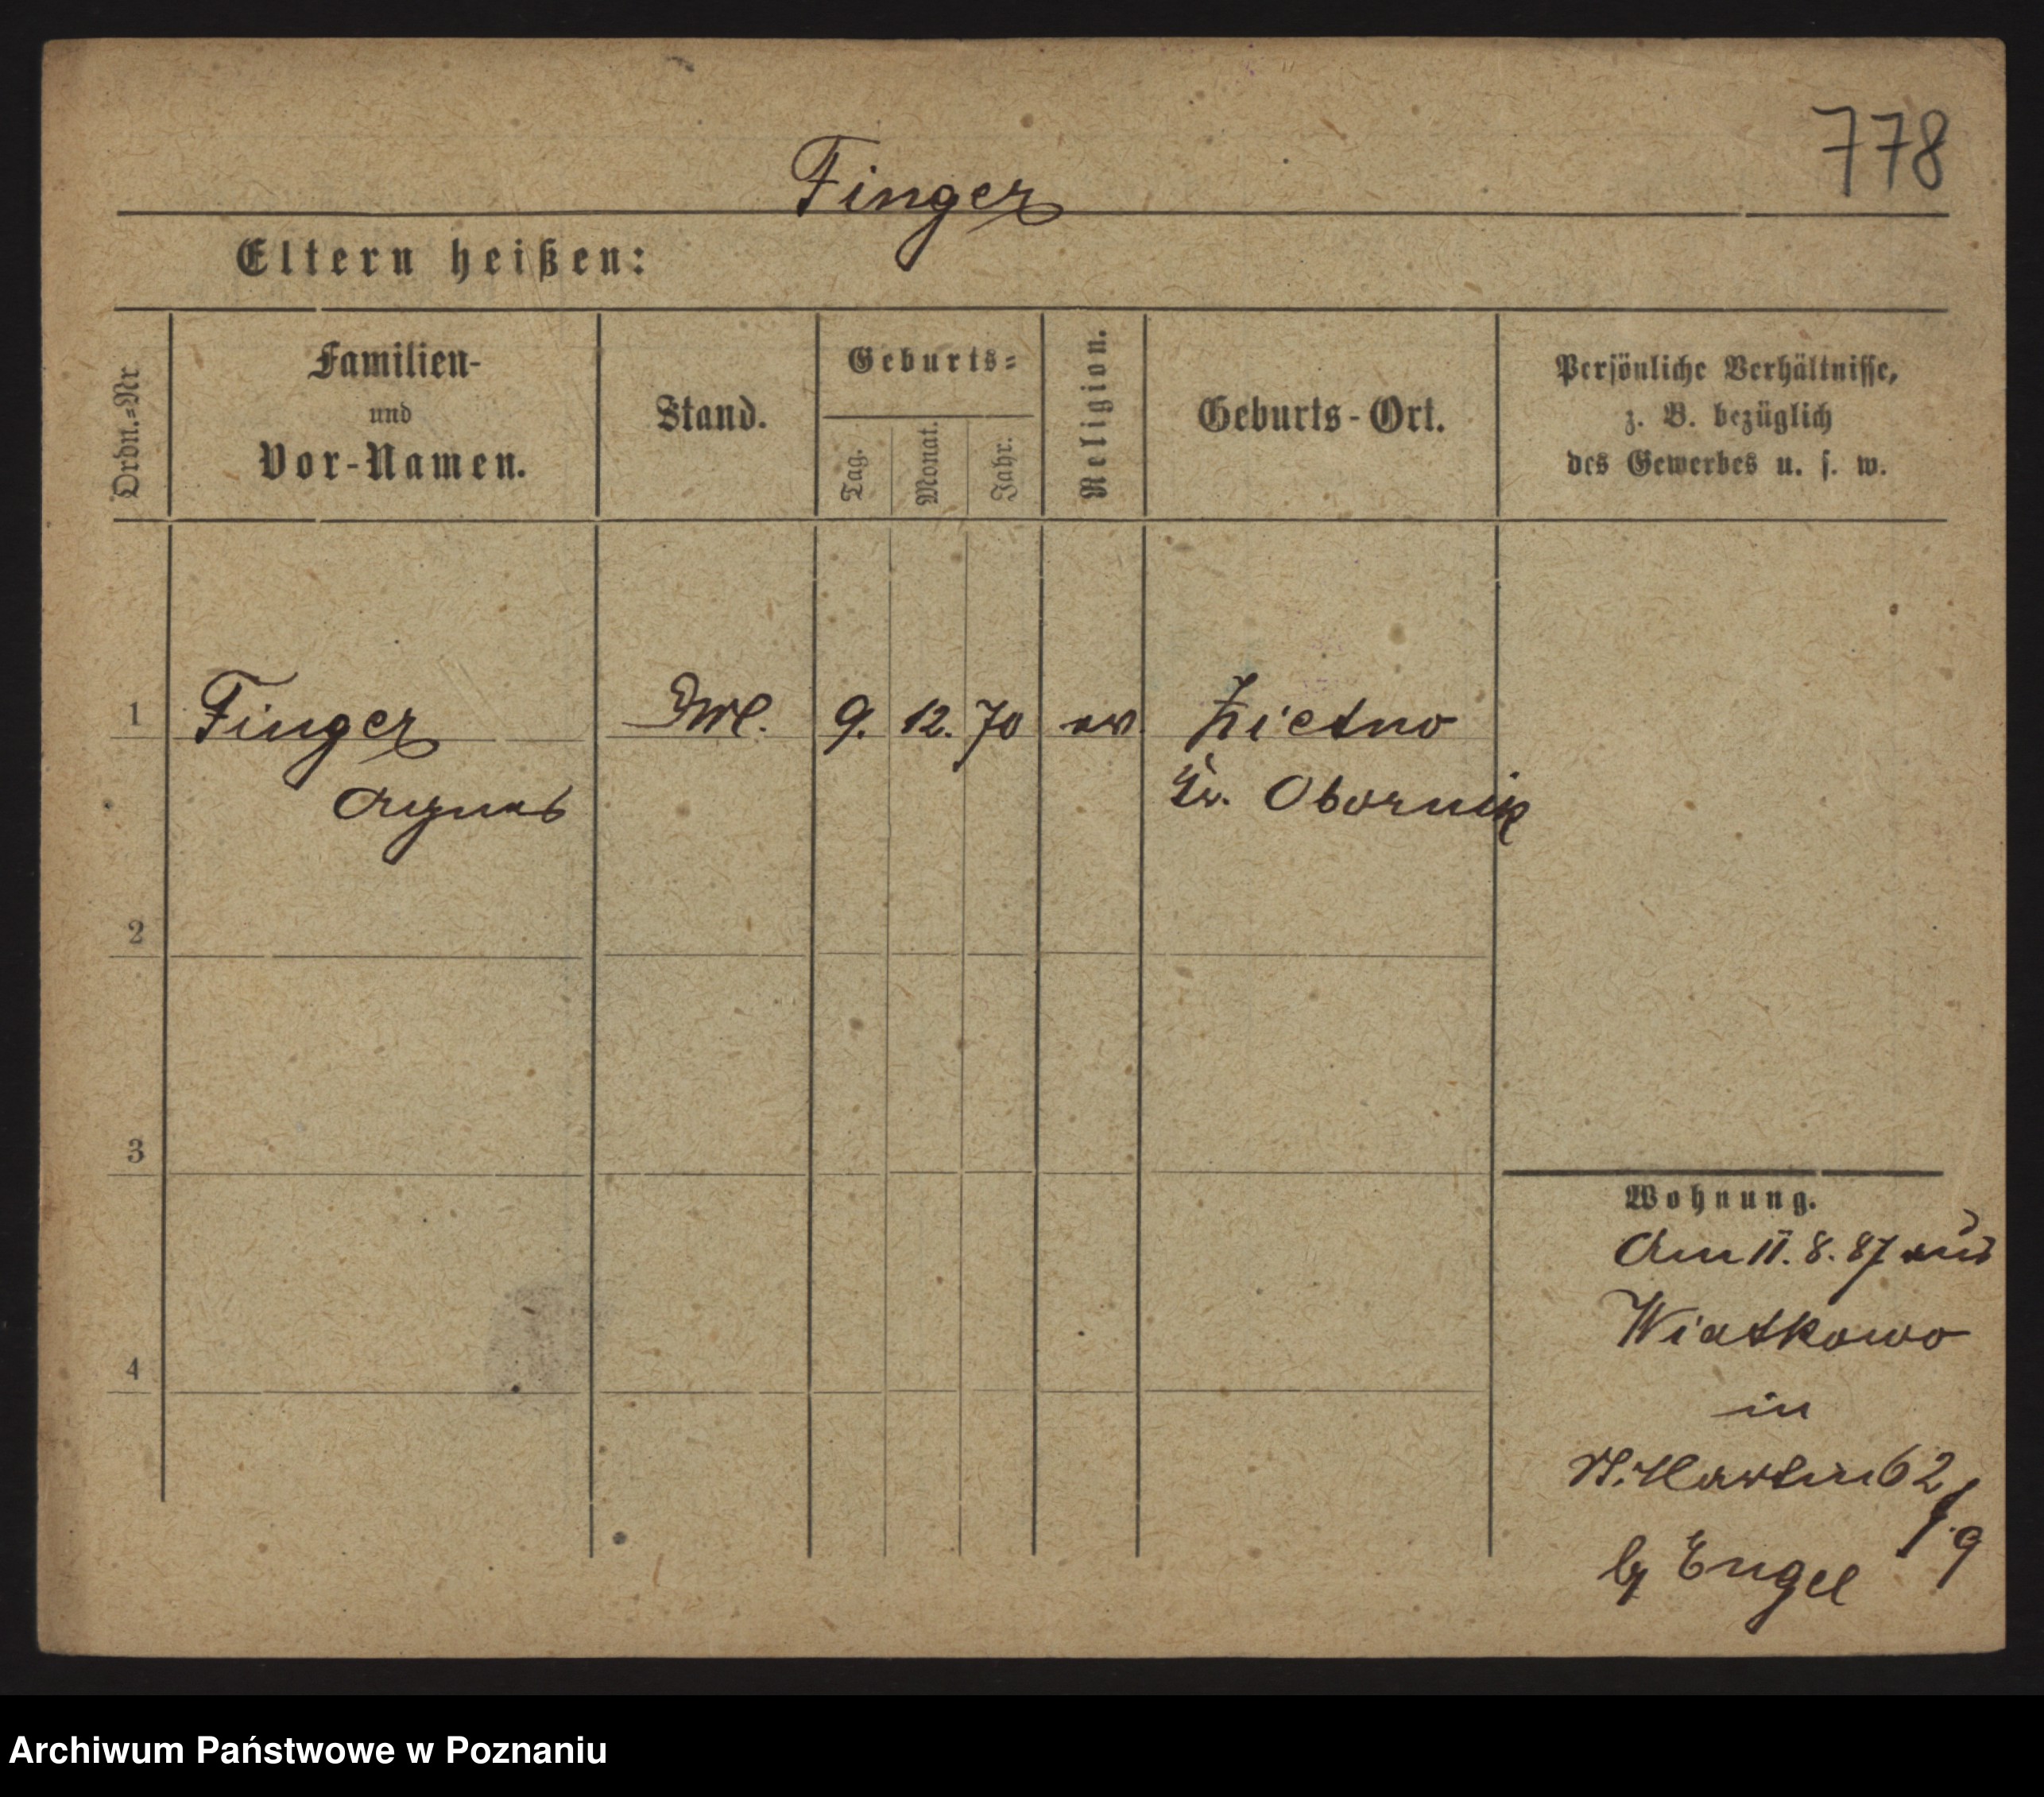 778
Finger
Eltern heißen:
Ordn.=Nr.
Familien-
und
Vor-Namen.
Stand.
Geburts=
Tag.
Monat.
Jahr.
Religion.
Geburts-Ort.
Persönliche Verhältnisse,
z. B. bezüglich
des Gewerbes u. s. w.
1 Finger 9. 12. 70 ev.
Agnes
Kr. Obornik
2
3
4
Wohnung.
Am 11. 8. 87 aus
Wiatkowo
in
St. Martin 62
b/ Engel
Archiwum Państwowe w Poznaniu